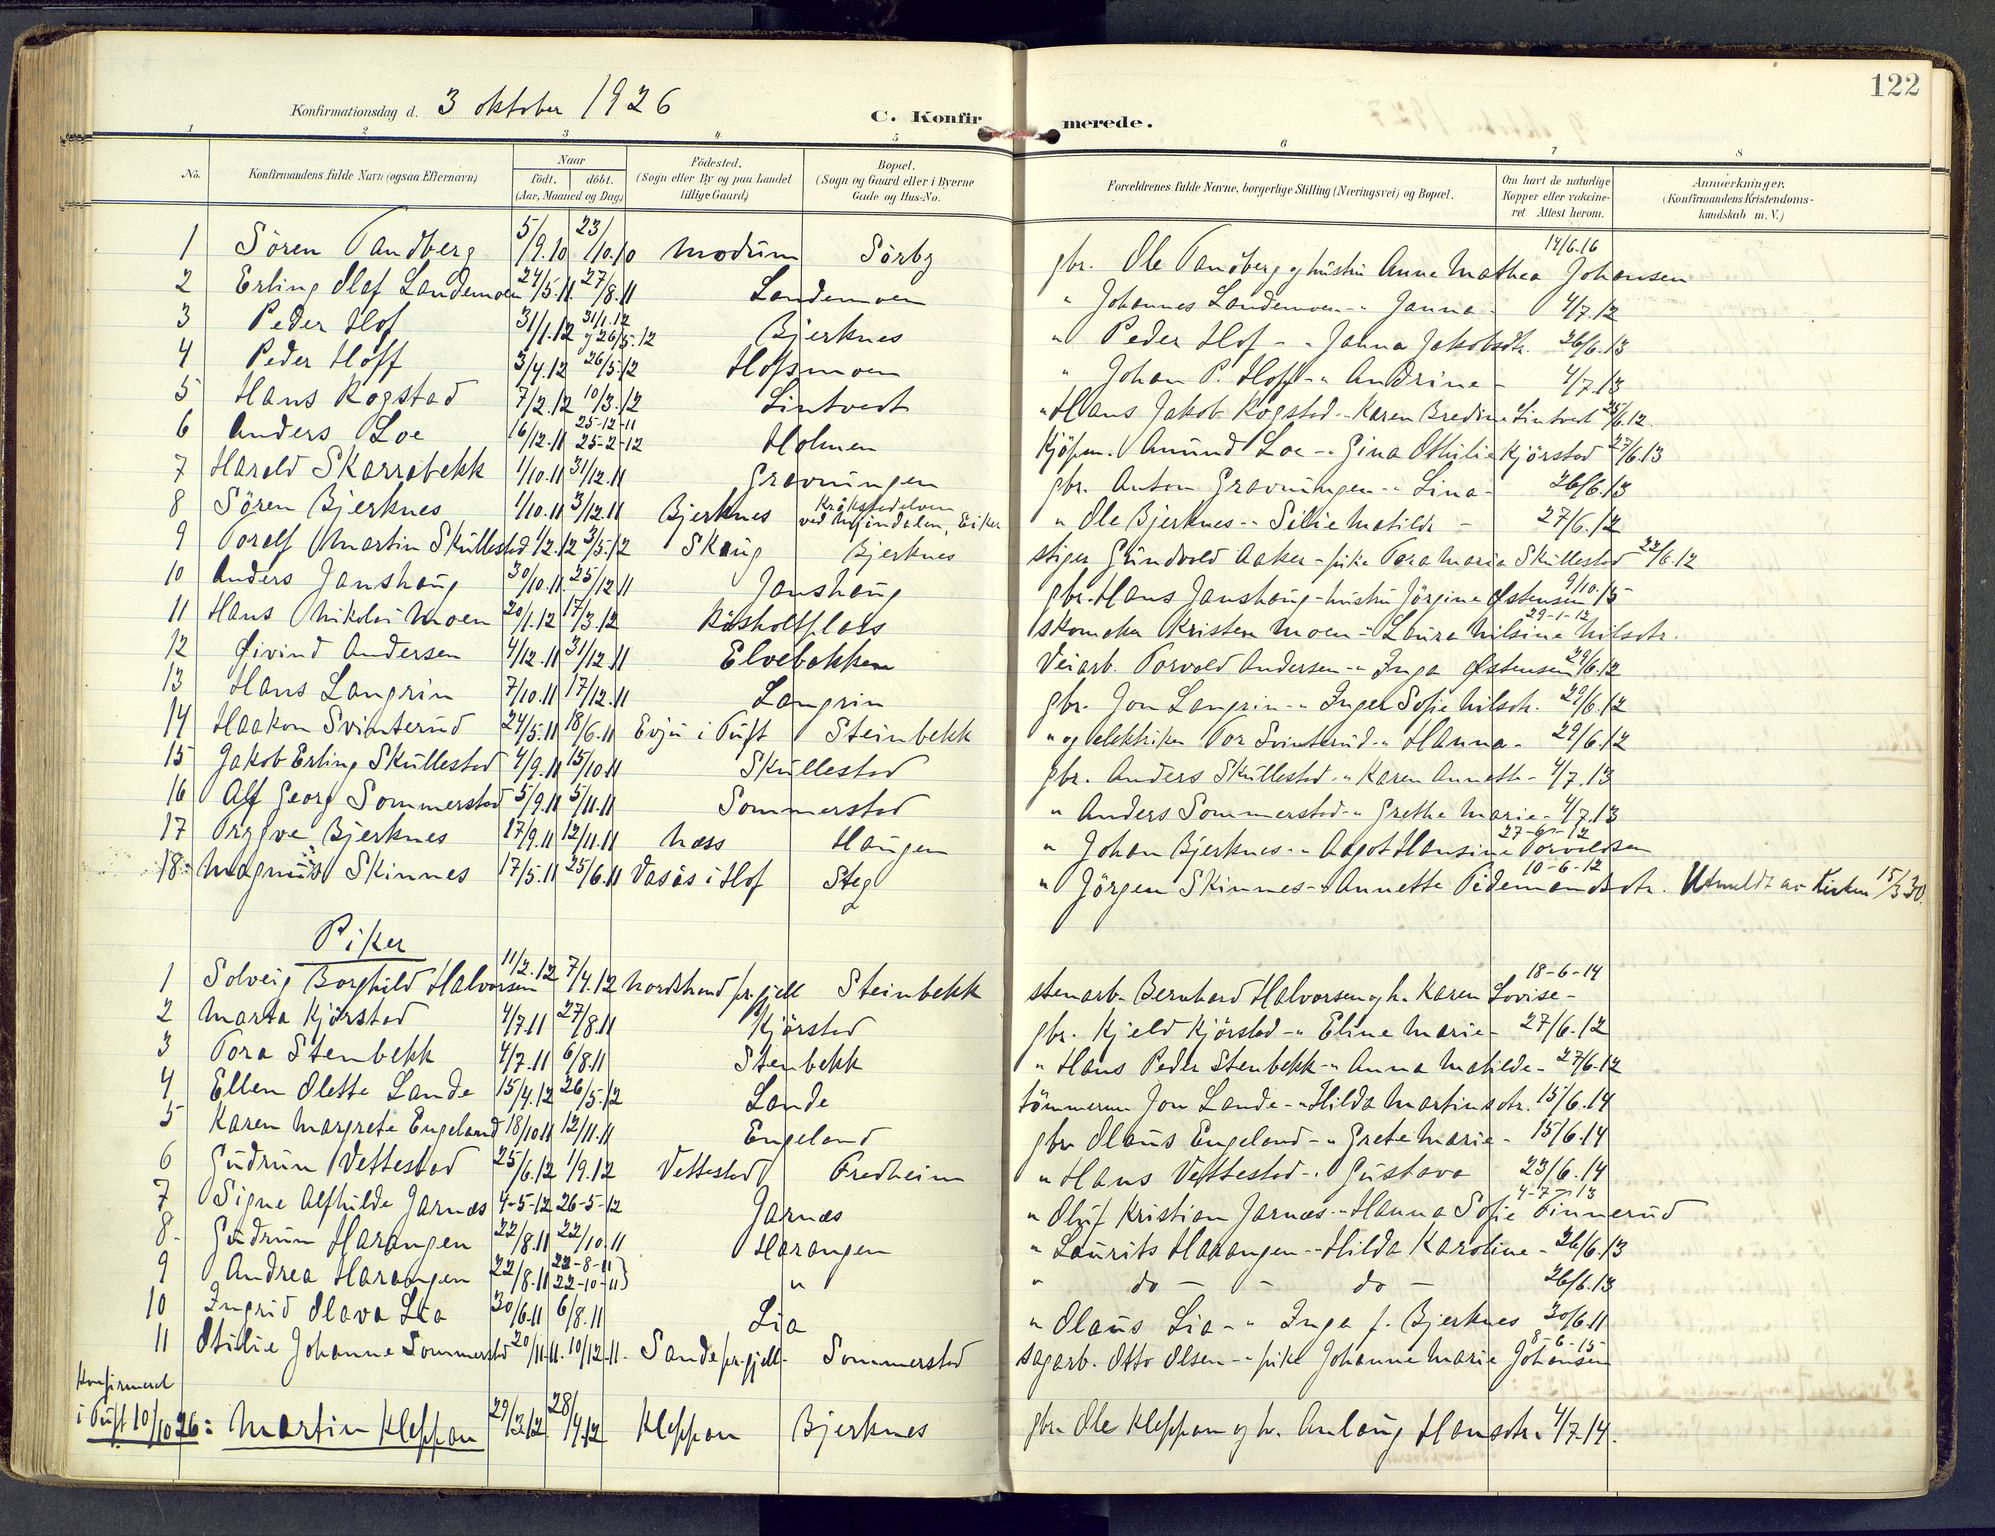 122
Konfirmationsdag d. 3 oktober 1926
C. Konfirmerede.
1 2 3 4 5 6 7 8
No. Konfirmandens fulde Navn (ogsaa Efternavn) Naar født. døbt. (Aar, Maaned og Dag) Fødested. (Sogn eller By og paa Landet tillige Gaard) Bopæl. (Sogn og Gaard eller i Byerne Gade og Hus-No. Forældrenes fulde Navne, borgerlige Stilling (Næringsvei) og Bopæl. Om havt de naturlige Kopper eller vaccineret Attest herom. Anmærkninger. (Konfirmandens Kristendomskundskab m. V.)
1 Sören Tandberg 5/9.10 23/10.10 Modum Sørby gbr. Ole Tandberg og hustru Anne Mathea Johansen 14/6.16
2 Erling Olaf Landemoen 24/5.11 27/8.11 Landemoen " Johannes Landemoen - " Janna - 4/7.12
3 Peder Hof 31/1.12 31/1.12 og 26/5.12 Bjerknes " Peder Hof - " Janna Jakobsdtr. 26/6.13
4 Peder Hoff 3/4.12 26/5.12 Hofsmoen " Johan P. Hoff - " Andrine - 4/7.13
5 Hans Rogstad 7/2.12 10/3.12 Lintvedt " Hans Jakob Rogstad - Karen Bredine Lintvedt 25/6.12.
6 Anders Loe 16/12.11 25-12-11 25-2-12 Holmen Kjöpm. Amund Loe - " Gina Othilie Kjörstad 27/6.13
7 Harald Skarrebekk 1/10.11 31/12.11 Gravningen gbr. Anton Gravningen - " Lina - 26/6.13
8 Sören Bjerknes 1/10.11 3/12.11 Bjerknes Krokstadelven ved Mjøndalen, Eiker " Ole Bjerknes - " Sillie Matilde - 27/6.12
9 Toralf Martin Skullestad 1/2.12 3/5.12 Skaug Bjerknes stiger Gundvald Aaker - pike Tora Marie Skullestad 22/6.12
10 Anders Janshaug 30/10.11 25/12.11 Janshaug gbr. Hans Janshaug - hustru Jörgine Østensen 9/10.15
11 Hans Nikolai Moen 20/1.12 17/3.12 Råsholtplass skomaker Kristen Moen - " Laura Nilsine Nilsdtr. 29-1-12
12 Øivind Andersen 4/12.11 31/12.11 Elvebakken Veiarb. Torvald Andersen - " Inga Østensen 29/6.12
13 Hans Langrin 7/10.11 17/12.11 Langrin gbr. Jon Langrin - " Inger Sofie Nilsdtr. 29/6.12
14 Haakon Svinterud 24/5.11 18/6.11 Evju i Tuft Steinbekk " og elektriker Tor Svinterud - " Hanna - 29/6.12
15 Jakob Erling Skullestad 4/9.11 15/10.11 Skullestad gbr. Anders Skullestad - " Karen Annette - 4/7.13
16 Alf Georg Sommerstad 5/9.11 5/11.11 Sommerstad " Anders Sommerstad - " Grethe Marie - 4/7.13
17 Trygve Bjerknes 17/9.11 12/11.11 Næss Haugen " Johan Bjerknes - " Aagot Hansine Torvaldsen 27-6-12
18 Magnus Skinnes 17/5.11 25/6.11 Vasås i Hof Steg " Jörgen Skinnes - " Annette Pedersdtr. 10-6-12 Utmeldt av Kirken 15/3 30.
Piker
1 Solveig Borghild Halvorsen 11/2.12 7/4.12 Nordstrand pr.gjell Steinbekk stenarb. Bernhard Halvorsen og h. Karen Lovise - 18-6-14
2 Marta Kjörstad 4/7.11 27/8.11 Kjörstad gbr. Kjeld Kjörstad - " Eline Marie - 27/6.12
3 Tora Stenbekk 4/7.11 6/8.11 Stenbekk " Hans Peder Stenbekk - " Anna Matilde - 27/6.12
4 Ellen Olette Lande 15/4.12 26/5.12 Lande tömmerm Jon Lande - " Hilda Martinsdtr. 15/6.14
5 Karen Margrete Engeland 18/10.11 12/11.11 Engeland gbr Olaus Engeland - " Grete Marie - 15/6.14
6 Gudrun Vettestad 25/6.12 1/9.12 Vettestad Fredheim " Hans Vettestad - " Gustava 23/6.14
7 Signe Alfhilde Jarnæs 4-5-12 26-5-12 Jarnæs " Oluf Kristian Jarnæs - " Hanna Sofie Finnerud 4-7-13
8. Gudrun Harangen 22/8.11 22/10.11 Harangen " Laurits Haaangen - " Hilda Karoline - 26/6.13
9 Andrea Harangen 22/8.11 22-8-11 22-10-11) " " do - - do - 26/6.13
10 Ingrid Olava Lia 30/6.11 6/8.11 Lia " Olaus Lia - " Inga f. Bjerknes 30/6.11
11 Otilie Johanne Sommerstad 20/11.11. 10/12.11. Sande pr.gjell. Sommerstad sagarb. Otto Olsen - " pike Johanne Marie Johansen 8-6-15
Konfirmerat
i Tuft 10/10 26: Martin Kleppan 29/3.12 28/4.12 Kleppan Bjerknes gbr. Ole Kleppan og h. Anlaug Hansdtr. 4/7.14.